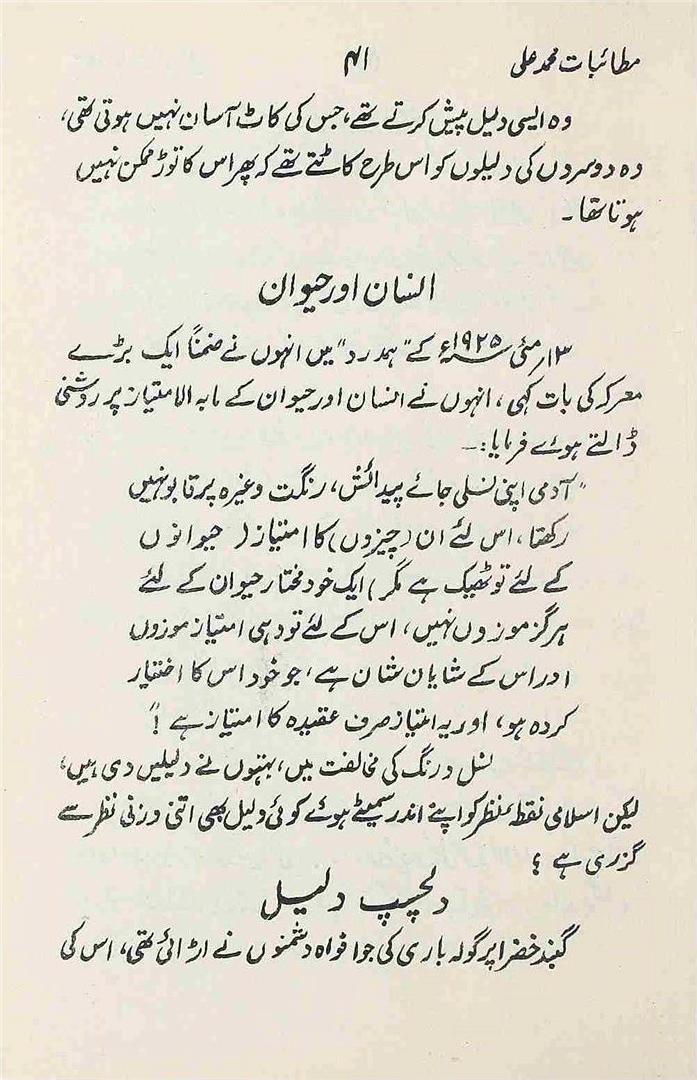 مطائبات محمد علی ۴۱
وہ ایسی دلیل پیش کرتے تھے، جس کی کاٹ آسان نہیں ہوتی تھی،
وہ دوسروں کی دلیلوں کو اس طرح کاٹتے تھے کہ پھر اس کا توڑ ممکن نہیں
ہوتا تھا۔
انسان اور حیوان
۱۳؍مئی ۱۹۲۵ء کے "ہمدرد" میں انہوں نے ضمناً ایک بڑے
معرکہ کی بات کہی، انہوں نے انسان اور حیوان کے مابہ الامتیاز پر روشنی
ڈالتے ہوئے فرمایا:۔
"آدمی اپنی نسلی جائے پیدائش، رنگت وغیرہ پر قابو نہیں
رکھتا، اس لئے ان (چیزوں) کا امتیاز (حیوانوں
کے لئے تو ٹھیک ہے مگر) ایک خود مختار حیوان کے لئے
ہرگز موزوں نہیں، اس کے لئے تو وہی امتیاز موزوں
اور اس کے شایان شان ہے، جو خود اس کا اختیار
کردہ ہو، اور یہ امتیاز صرف عقیدہ کا امتیاز ہے!"
نسل و رنگ کی مخالفت میں، بہتوں نے دلیلیں دی ہیں،
لیکن اسلامی نقطۂ نظر کو اپنے اندر سمیٹے ہوئے کوئی دلیل بھی اتنی وزنی نظر سے
گزری ہے؟
دلچسپ دلیل
گنبد خضرا پر گولہ باری کی جو افواہ دشمنوں نے اڑائی تھی، اس کی